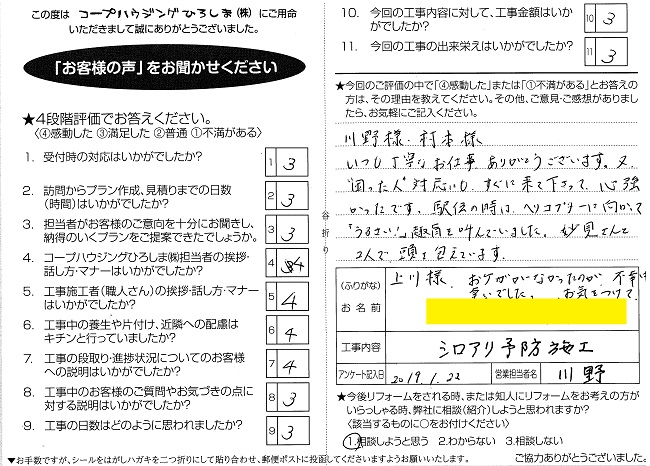 この度は コープハウジングひろしま(株) にご用命
いただきまして誠にありがとうございました。
「お客様の声」をお聞かせください
★4段階評価でお答えください。
〈④感動した ③満足した ②普通 ①不満がある〉
1. 受付時の対応はいかがでしたか?
1 3
2. 訪問からプラン作成、見積りまでの日数
(時間)はいかがでしたか?
2 3
3. 担当者がお客様のご意向を十分にお聞きし、
納得のいくプランをご提案できたでしょうか。
3 3
4. コープハウジングひろしま㈱担当者の挨拶・
話し方・マナーはいかがでしたか?
4 4
5. 工事施工者(職人さん)の挨拶・話し方・マナー
はいかがでしたか?
5 4
6. 工事中の養生や片付け、近隣への配慮は
キチンと行っていましたか?
6 4
7. 工事の段取り・進捗状況についてのお客様
への説明はいかがでしたか?
7 4
8. 工事中のお客様のご質問やお気づきの点に
対する説明はいかがでしたか?
8 3
9. 工事の日数はどのように思われましたか?
9 3
谷折り
10. 今回の工事内容に対して、工事金額はいか
がでしたか?
10 3
11. 今回の工事の出来栄えはいかがでしたか?
11 3
★今回のご評価の中で「④感動した」または「①不満がある」とお答え
の方は、その理由を教えてください。その他、ご意見・ご感想がありまし
たら、お気軽にご記入ください。
川野様・村本様
いつも丁寧なお仕事ありがとうございます。又、
困った人対応にも、すぐに来て下さって、心強
かったです。駅伝の時は、ヘリコプターに向かって
「うるさい!」趣旨を叫んでいました。妙見さんと
2人で頭を抱えています。
上川様、おケガがなかったのが不幸中
幸いでした。 お気をつけて
(ふりがな)
お名前
工事内容 シロアリ予防施工
アンケート記入日 2019.1.22 営業担当者名 川野
★今後リフォームをされる時、または知人にリフォームをお考えの方が
いらっしゃる時、弊社に相談(紹介)しようと思われますか?
〈該当するものに○をお付けください〉
1.相談しようと思う 2.わからない 3.相談しない
▼お手数ですが、シールをはがしハガキを二つ折りにして貼り合わせ、郵便ポストに投函してくださいますようお願いいたします。
ご協力ありがとうございました。